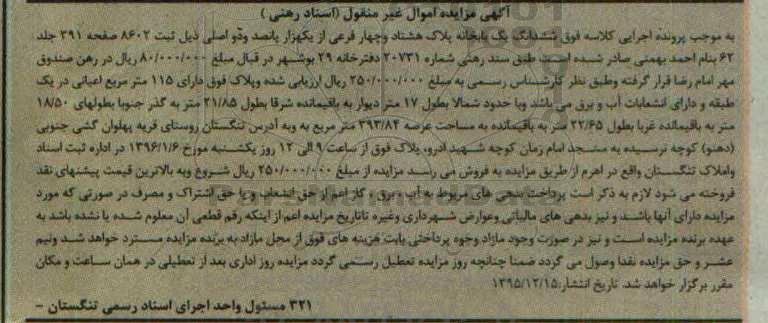 آگهی مزایده اموال غیر منقول (اسناد رهنی)
به موجب پرونده اجرایی کلاسه فوق ششدانگ یک بابخانه پلاک هشتاد وچهار فرعی از یکهزار پانصد ودو اصلی ذیل ثبت ۸۶۰۲ صفحه ۳۹۱ جلد
۶۲ بنام احمد بهمنی صادر شده است طبق سند رهنی شماره ۲۰۷۳۱ دفترخانه ۲۹ بوشهر در قبال مبلغ ۸۰/۰۰۰/۰۰۰ ریال در رهن صندوق
مهر امام رضا قرار گرفته وطبق نظر کارشناس رسمی به مبلغ ۲۵۰/۰۰۰/۰۰۰ ریال ارزیابی شده وپلاک فوق دارای ۱۱۵ متر مربع اعیانی در یک
طبقه و دارای انشعابات آب و برق می باشد وبا حدود شمالا بطول ۱۷ متر دیوار به باقیمانده شرقا بطول ۲۱/۸۵ متر به گذر جنوبا بطولهای ۱۸/۵۰
متر به باقیمانده غربا بطول ۲۲/۶۵ متر به باقیمانده به مساحت عرصه ۳۹۳/۸۴ متر مربع به وبه آدرس تنگستان روستای قریه پهلوان کشی جنوبی
(دهنو) کوچه نرسیده به مسجد امام زمان کوچه شهید ادرو، پلاک فوق از ساعت ۹ الی ۱۲ روز یکشنبه مورخ ۱۳۹۶/۱/۶ در اداره ثبت اسناد
واملاک تنگستان واقع در اهرم از طریق مزایده به فروش می رسد مزایده از مبلغ ۲۵۰/۰۰۰/۰۰۰ ریال شروع وبه بالاترین قیمت پیشنهادی نقد
فروخته می شود لازم به ذکر است پرداخت بدهی های مربوط به آب ، برق ، گاز اعم از حق انشعاب و یا حق اشتراک و مصرف در صورتی که مورد
مزایده دارای آنها باشد و نیز بدهی های مالیاتی وعوارض شهرداری وغیره تاتاریخ مزایده اعم از اینکه رقم قطعی آن معلوم شده یا نشده باشد به
عهده برنده مزایده است و نیز در صورت وجود مازاد وجوه پرداختی بابت هزینه های فوق از محل مازاد به برنده مزایده مسترد خواهد شد ونیم
عشر و حق مزایده نقدا وصول می گردد ضمنا چنانچه روز مزایده تعطیل رسمی گردد مزایده روز اداری بعد از تعطیلی در همان ساعت و مکان
مقرر برگزار خواهد شد. تاریخ انتشار:۱۳۹۵/۱۲/۱۵
۳۲۱ مسئول واحد اجرای اسناد رسمی تنگستان -